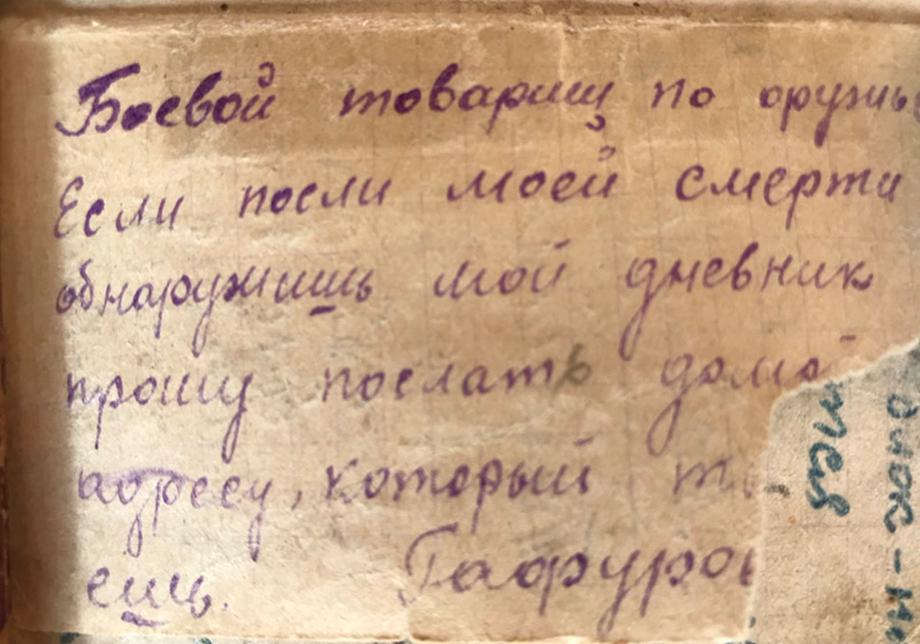 Боевой товарищ по оружь
Если посли моей смерти
обнаружишь мой дневник
прошу послать домой
адресу, который
ешь. Гафуров